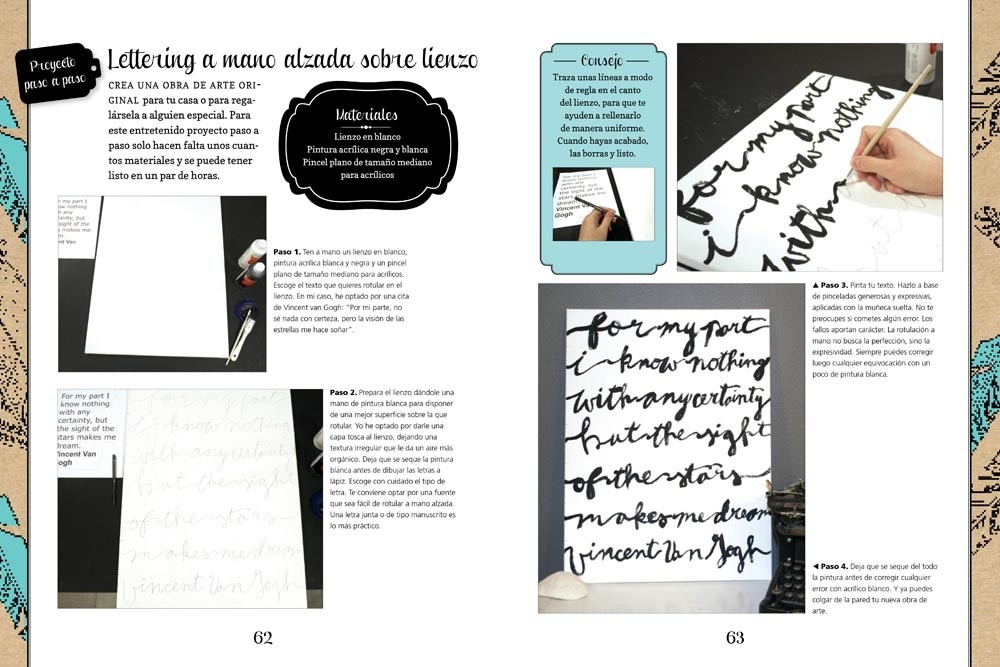 Proyecto
paso a paso
Lettering a mano alzada sobre lienzo
CREA UNA OBRA DE ARTE ORI-
GINAL para tu casa o para rega-
lársela a alguien especial. Para
este entretenido proyecto paso a
paso solo hacen falta unos cuan-
tos materiales y se puede tener
listo en un par de horas.
Materiales
Lienzo en blanco
Pintura acrílica negra y blanca
Pincel plano de tamaño mediano
para acrílicos
know nothing
with any
certainty, but
the sight of the
stars makes me
Vincent Van
Paso 1. Ten a mano un lienzo en blanco,
pintura acrílica blanca y negra y un pincel
plano de tamaño mediano para acrílicos.
Escoge el texto que quieres rotular en el
lienzo. En mi caso, he optado por una cita
de Vincent van Gogh: “Por mi parte, no
sé nada con certeza, pero la visión de las
estrellas me hace soñar”.
For my part I
know nothing
with any
certainty, but
the sight of the
stars makes me
dream.
Vincent Van
Gogh
for my part
i know nothing
with any certainty
but the sight
of the stars
makes me dream
vincent Van Gogh
Paso 2. Prepara el lienzo dándole una
mano de pintura blanca para disponer
de una mejor superficie sobre la que
rotular. Yo he optado por darle una
capa tosca al lienzo, dejando una
textura irregular que le da un aire más
orgánico. Deja que se seque la pintura
blanca antes de dibujar las letras a
lápiz. Escoge con cuidado el tipo de
letra. Te conviene optar por una fuente
que sea fácil de rotular a mano alzada.
Una letra junta o de tipo manuscrito es
lo más práctico.
62
Consejo
Traza unas líneas a modo
de regla en el canto
del lienzo, para que te
ayuden a rellenarlo
de manera uniforme.
Cuando hayas acabado,
las borras y listo.
For my part I
know nothing
with any
certainty, but
the sight of the
stars makes me
dream.
Vincent Van
Gogh
for my part
i know nothing
with
▲ Paso 3. Pinta tu texto. Hazlo a base
de pinceladas generosas y expresivas,
aplicadas con la muñeca suelta. No te
preocupes si cometes algún error. Los
fallos aportan carácter. La rotulación a
mano no busca la perfección, sino la
expresividad. Siempre puedes corregir
luego cualquier equivocación con un
poco de pintura blanca.
for my part
i know nothing
with any certainty
but the sight
of the stars
makes me dream
vincent Van Gogh
◄ Paso 4. Deja que se seque del todo
la pintura antes de corregir cualquier
error con acrílico blanco. Y ya puedes
colgar de la pared tu nueva obra de
arte.
63